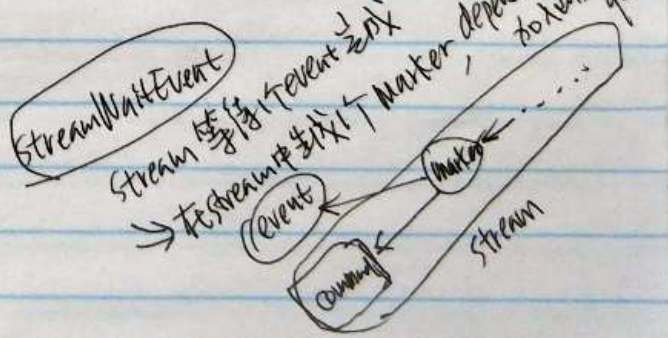 StreamWaitEvent
Stream 等待1个event完成
→ 在stream中生成1个Marker, depen
event
marker
command
stream